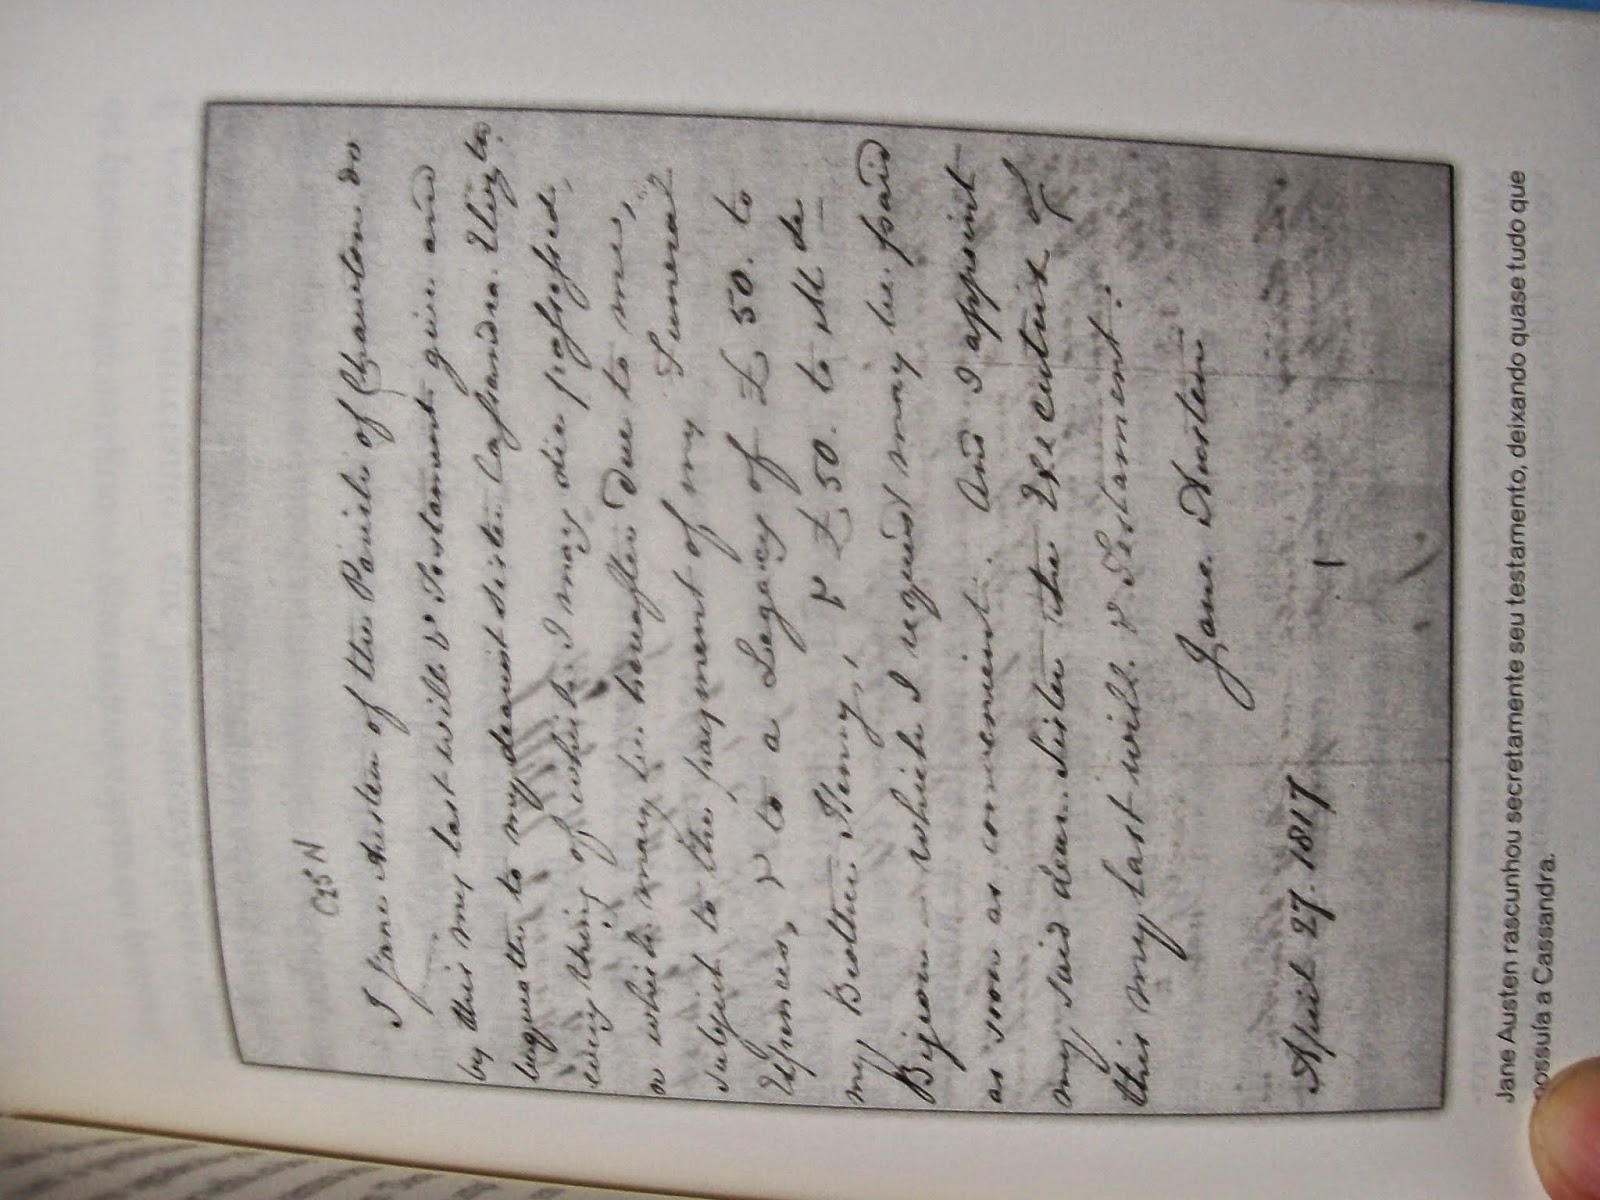 C25 N
I Jane Austen of the Parish of Chawton do
by this my last Will & Testament give and
bequeathe to my dearest Sister Cassandra Elizth
every thing of which I may die possessed,
or which may be hereafter due to me,
subject to the payment of my Funeral
Expences, & to a Legacy of £50. to
my Brother Henry, & £50. to M de
Bijeon— which I request may be paid
as soon as convenient. And I appoint
my said dear Sister the Executrix of
this my last will & Testament.
Jane Austen
April 27. 1817
Jane Austen rascunhou secretamente seu testamento, deixando quase tudo que
possuía a Cassandra.